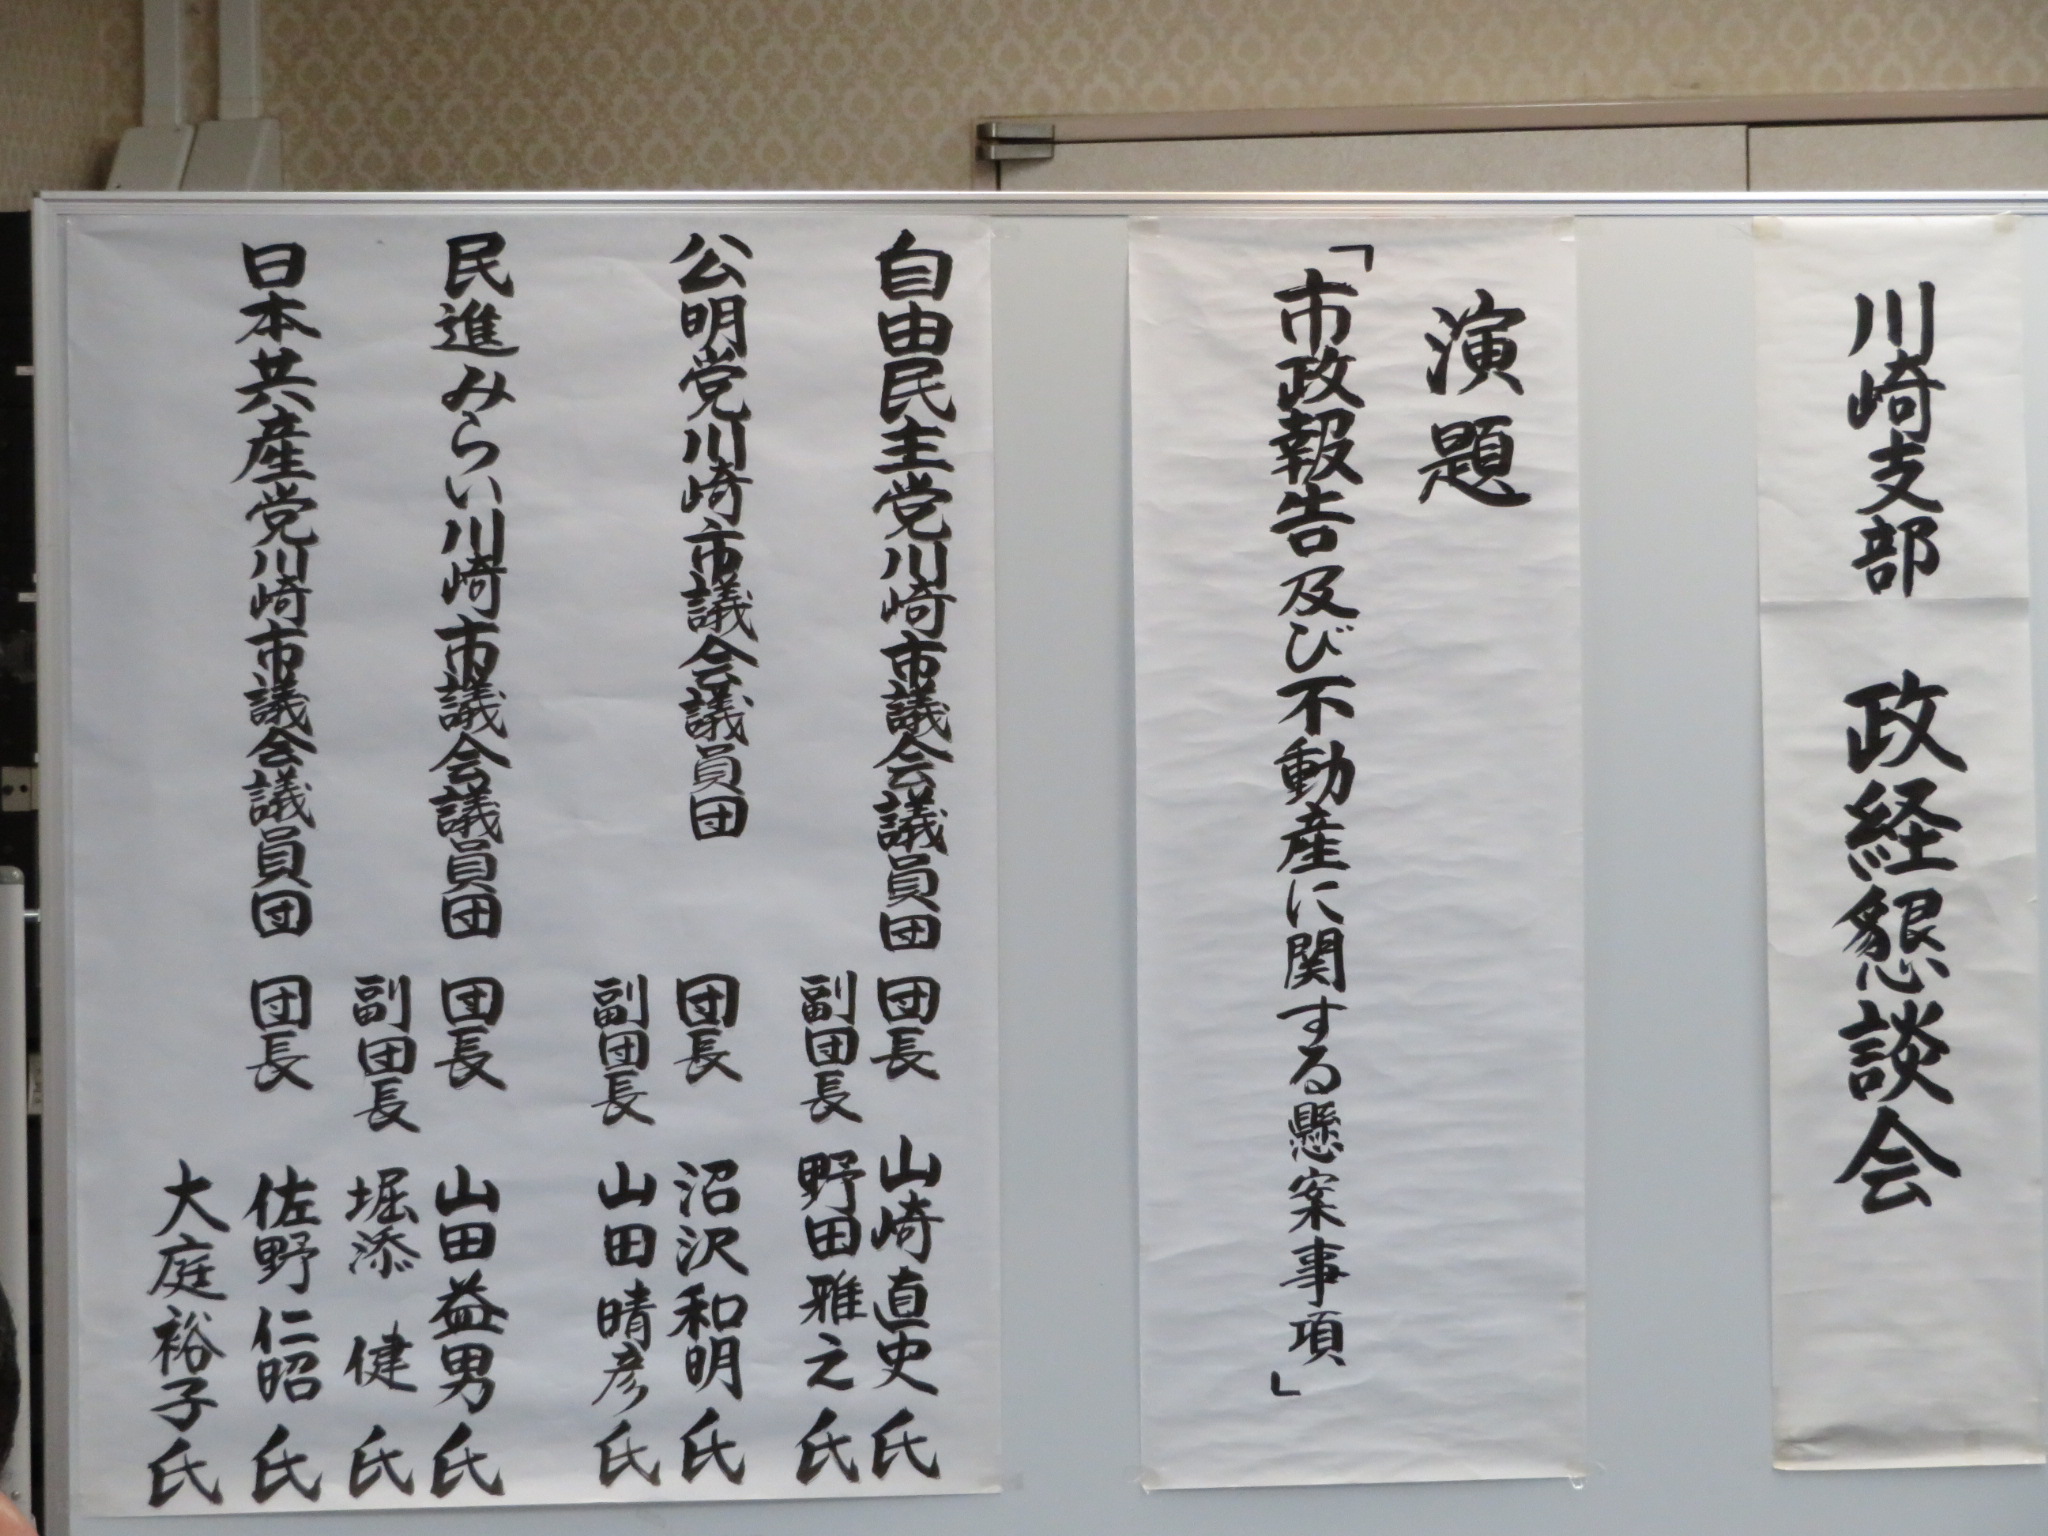 川崎支部 政経懇談会
演題
「市政報告及び不動産に関する懸案事項」
自由民主党川崎市議会議員団 団長 山崎直史 氏
副団長 野田雅之 氏
公明党川崎市議会議員団 団長 沼沢和明 氏
副団長 山田晴彦 氏
民進みらい川崎市議会議員団 団長 山田益男 氏
副団長 堀添 健 氏
日本共産党川崎市議会議員団 団長 佐野仁昭 氏
大庭裕子 氏